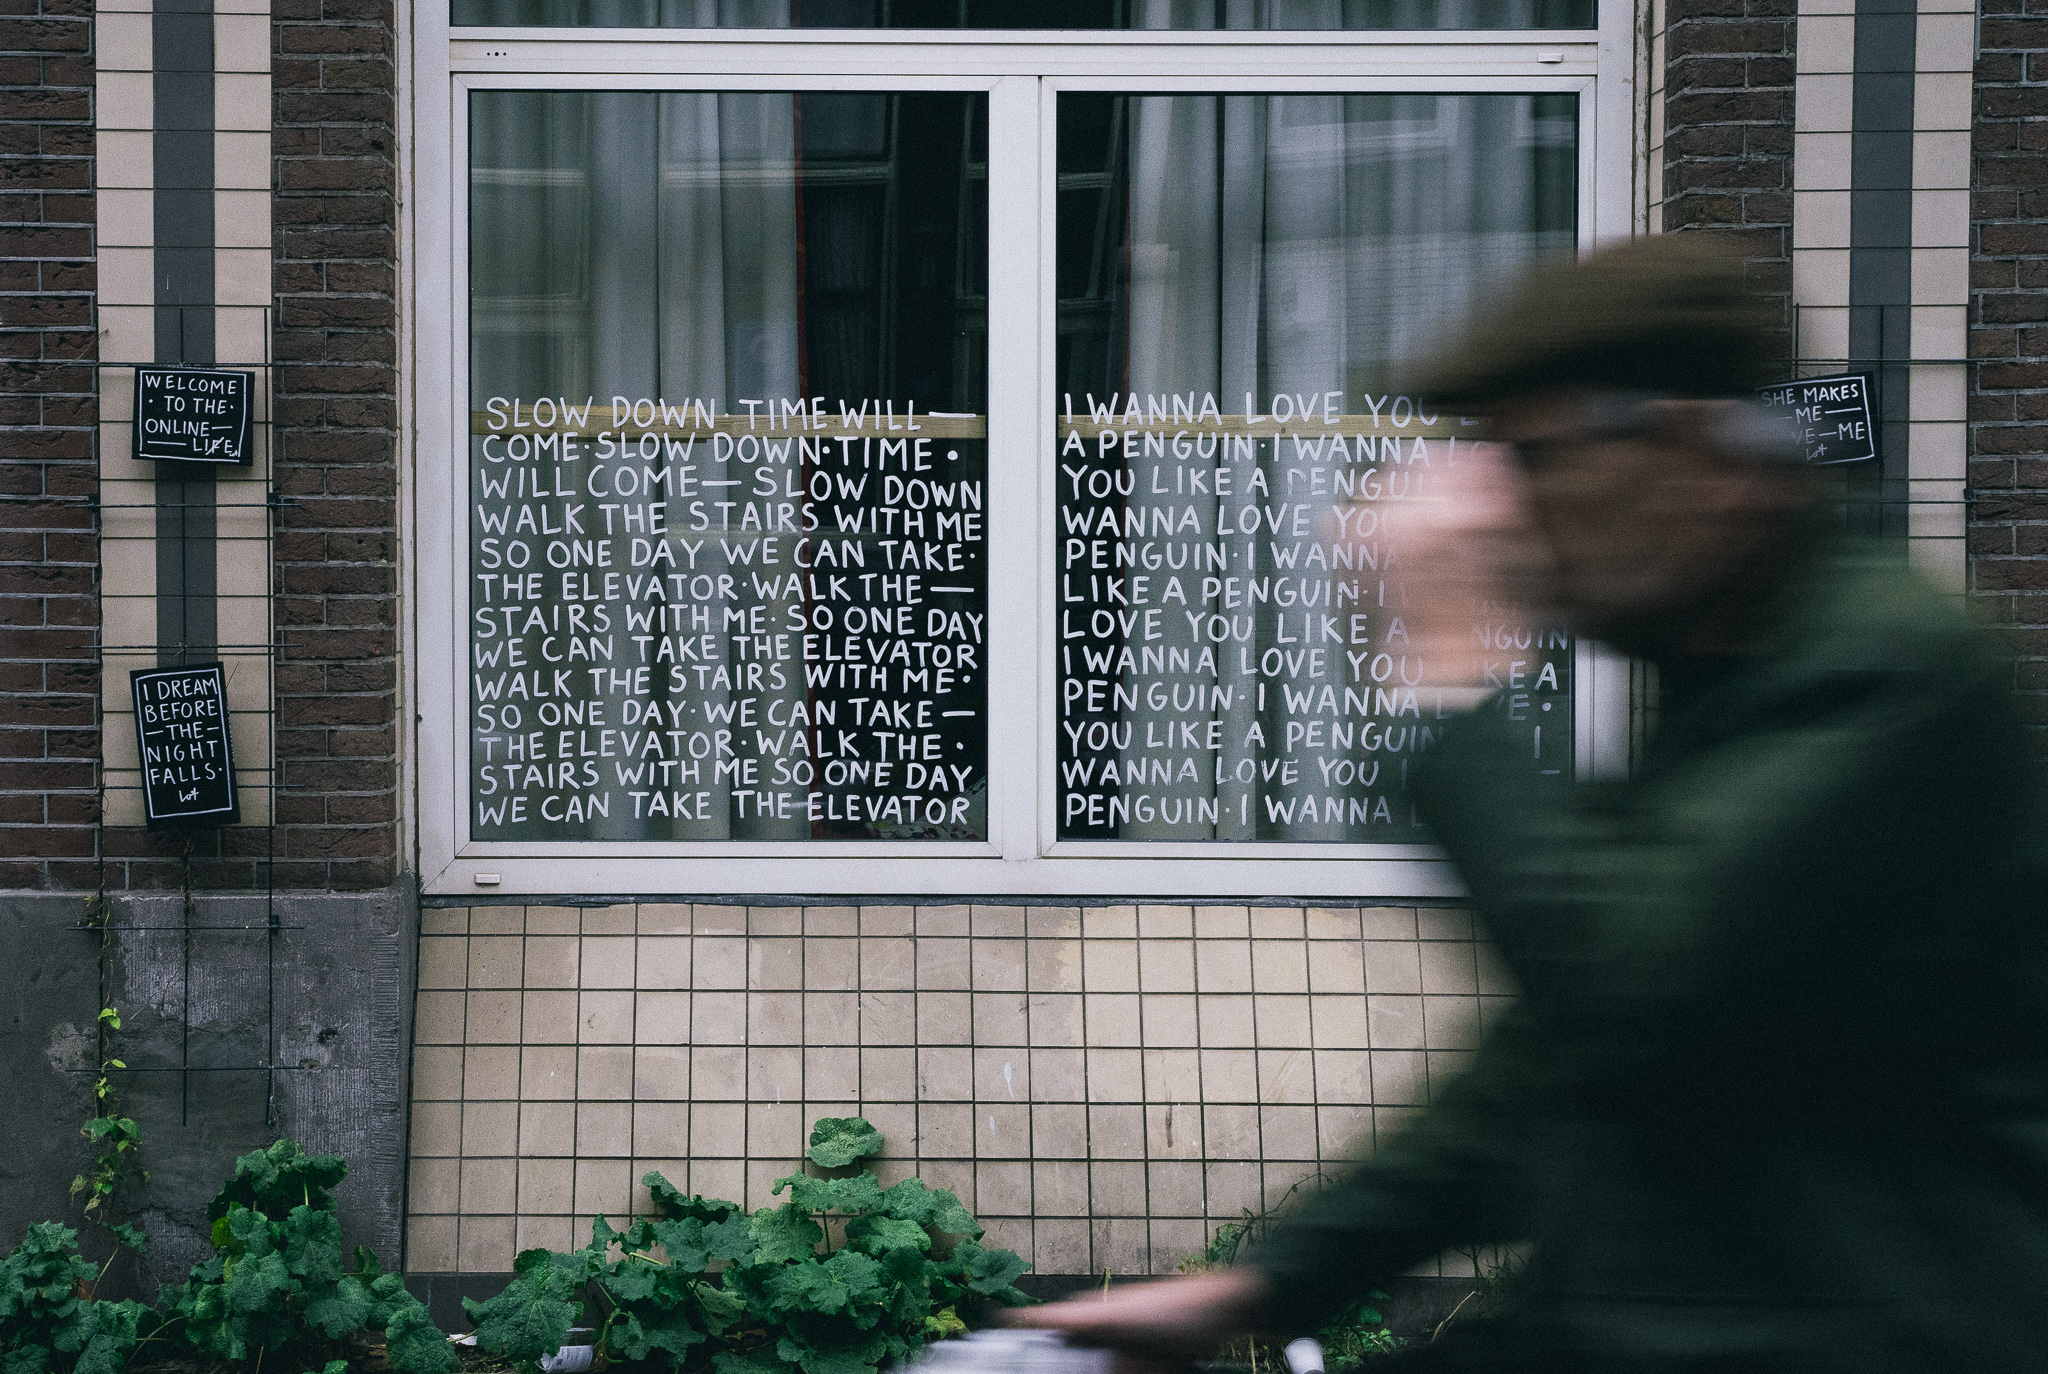 WELCOME
· TO THE ·
ONLINE—
— LIFE.
Lot
I DREAM
BEFORE
—THE—
NIGHT
FALLS·
Lot
SLOW DOWN· TIME WILL —
COME· SLOW DOWN· TIME ·
WILL COME— SLOW DOWN
WALK THE STAIRS WITH ME
SO ONE DAY WE CAN TAKE·
THE ELEVATOR· WALK THE —
STAIRS WITH ME· SO ONE DAY
WE CAN TAKE THE ELEVATOR
WALK THE STAIRS WITH ME·
SO ONE DAY· WE CAN TAKE —
THE ELEVATOR· WALK THE ·
STAIRS WITH ME SO ONE DAY
WE CAN TAKE THE ELEVATOR
I WANNA LOVE YOU
A PENGUIN· I WANNA
YOU LIKE A PENGUIN
WANNA LOVE YOU
PENGUIN· I WANNA
LIKE A PENGUIN· I
LOVE YOU LIKE A PENGUIN
I WANNA LOVE YOU LIKE A
PENGUIN· I WANNA LOVE ·
YOU LIKE A PENGUIN I —
WANNA LOVE YOU —
PENGUIN· I WANNA
SHE MAKES
—ME—
—ME
Lot